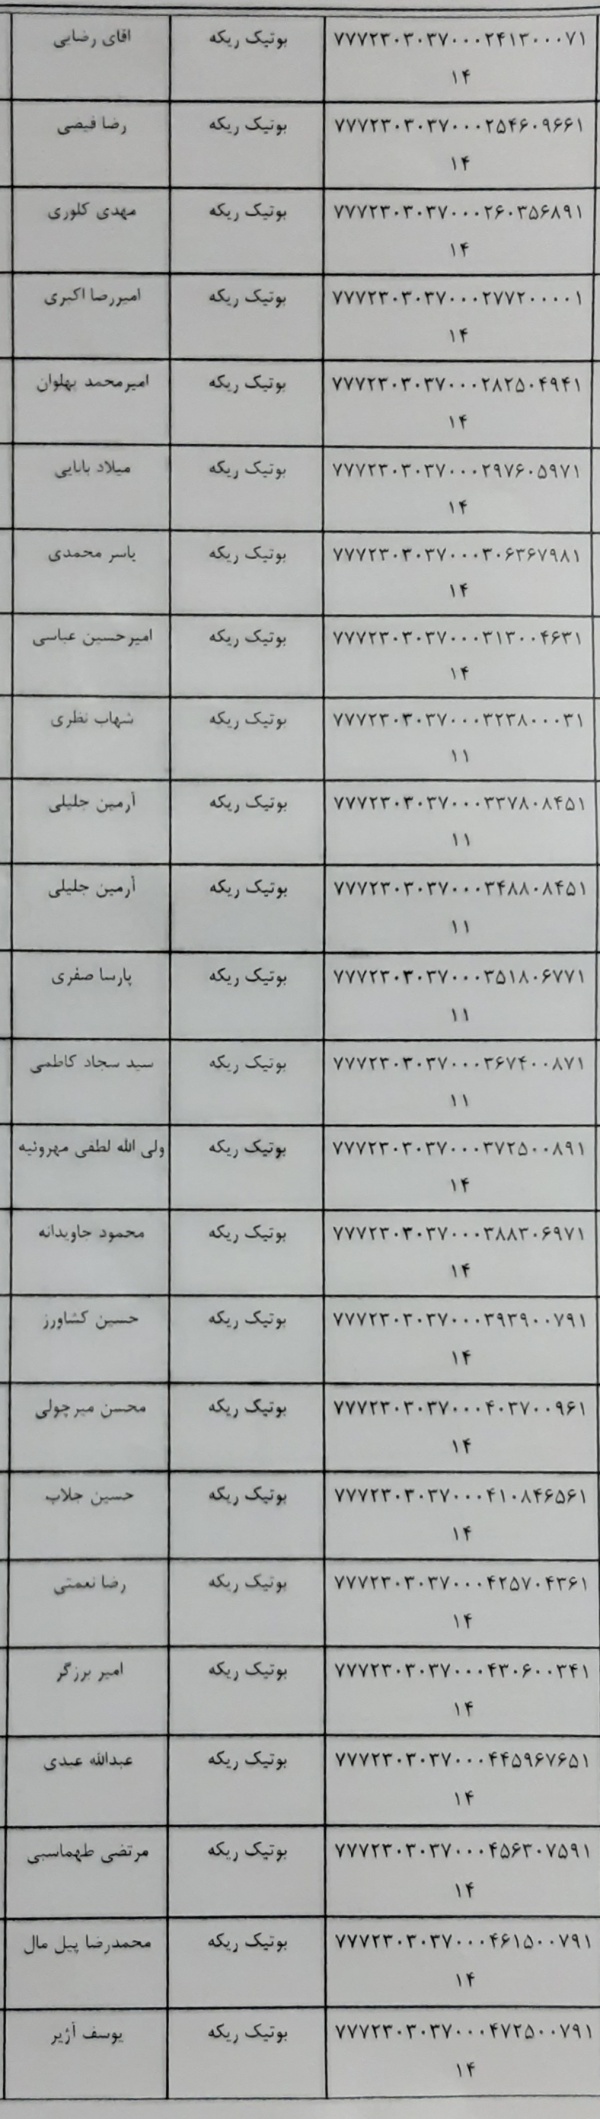 ۷۷۷۲۳۰۳۰۳۷۰۰۰۲۴۱۳۰۰۰۷۱ بوتیک ریکه اقای رضایی
۱۴
۷۷۷۲۳۰۳۰۳۷۰۰۰۲۵۴۶۰۹۶۶۱ بوتیک ریکه رضا فیضی
۱۴
۷۷۷۲۳۰۳۰۳۷۰۰۰۲۶۰۳۵۶۸۹۱ بوتیک ریکه مهدی کلوری
۱۴
۷۷۷۲۳۰۳۰۳۷۰۰۰۲۷۷۲۰۰۰۰۱ بوتیک ریکه امیررضا اکبری
۱۴
۷۷۷۲۳۰۳۰۳۷۰۰۰۲۸۲۵۰۴۹۴۱ بوتیک ریکه امیرمحمد پهلوان
۱۴
۷۷۷۲۳۰۳۰۳۷۰۰۰۲۹۷۶۰۵۹۷۱ بوتیک ریکه میلاد بابایی
۱۴
۷۷۷۲۳۰۳۰۳۷۰۰۰۳۰۶۳۶۷۹۸۱ بوتیک ریکه یاسر محمدی
۱۴
۷۷۷۲۳۰۳۰۳۷۰۰۰۳۱۳۰۰۴۶۳۱ بوتیک ریکه امیرحسین عباسی
۱۴
۷۷۷۲۳۰۳۰۳۷۰۰۰۳۲۳۸۰۰۰۳۱ بوتیک ریکه شهاب نظری
۱۱
۷۷۷۲۳۰۳۰۳۷۰۰۰۳۳۷۸۰۸۴۵۱ بوتیک ریکه آرمین جلیلی
۱۱
۷۷۷۲۳۰۳۰۳۷۰۰۰۳۴۸۸۰۸۴۵۱ بوتیک ریکه آرمین جلیلی
۱۱
۷۷۷۲۳۰۳۰۳۷۰۰۰۳۵۱۸۰۶۷۷۱ بوتیک ریکه پارسا صفری
۱۱
۷۷۷۲۳۰۳۰۳۷۰۰۰۳۶۷۴۰۰۸۷۱ بوتیک ریکه سید سجاد کاظمی
۱۱
۷۷۷۲۳۰۳۰۳۷۰۰۰۳۷۲۵۰۰۸۹۱ بوتیک ریکه ولی الله لطفی مهروئیه
۱۴
۷۷۷۲۳۰۳۰۳۷۰۰۰۳۸۸۳۰۶۹۷۱ بوتیک ریکه محمود جاویدانه
۱۴
۷۷۷۲۳۰۳۰۳۷۰۰۰۳۹۳۹۰۰۷۹۱ بوتیک ریکه حسین کشاورز
۱۴
۷۷۷۲۳۰۳۰۳۷۰۰۰۴۰۳۷۰۰۹۶۱ بوتیک ریکه محسن میرچولی
۱۴
۷۷۷۲۳۰۳۰۳۷۰۰۰۴۱۰۸۴۶۵۶۱ بوتیک ریکه حسین جلاب
۱۴
۷۷۷۲۳۰۳۰۳۷۰۰۰۴۲۵۷۰۴۳۶۱ بوتیک ریکه رضا نعمتی
۱۴
۷۷۷۲۳۰۳۰۳۷۰۰۰۴۳۰۶۰۰۳۴۱ بوتیک ریکه امیر برزگر
۱۴
۷۷۷۲۳۰۳۰۳۷۰۰۰۴۴۵۹۶۷۶۵۱ بوتیک ریکه عبدالله عبدی
۱۴
۷۷۷۲۳۰۳۰۳۷۰۰۰۴۵۶۳۰۷۵۹۱ بوتیک ریکه مرتضی طهماسبی
۱۴
۷۷۷۲۳۰۳۰۳۷۰۰۰۴۶۱۵۰۰۷۹۱ بوتیک ریکه محمدرضا پیل مال
۱۴
۷۷۷۲۳۰۳۰۳۷۰۰۰۴۷۲۵۰۰۷۹۱ بوتیک ریکه یوسف آژیر
۱۴